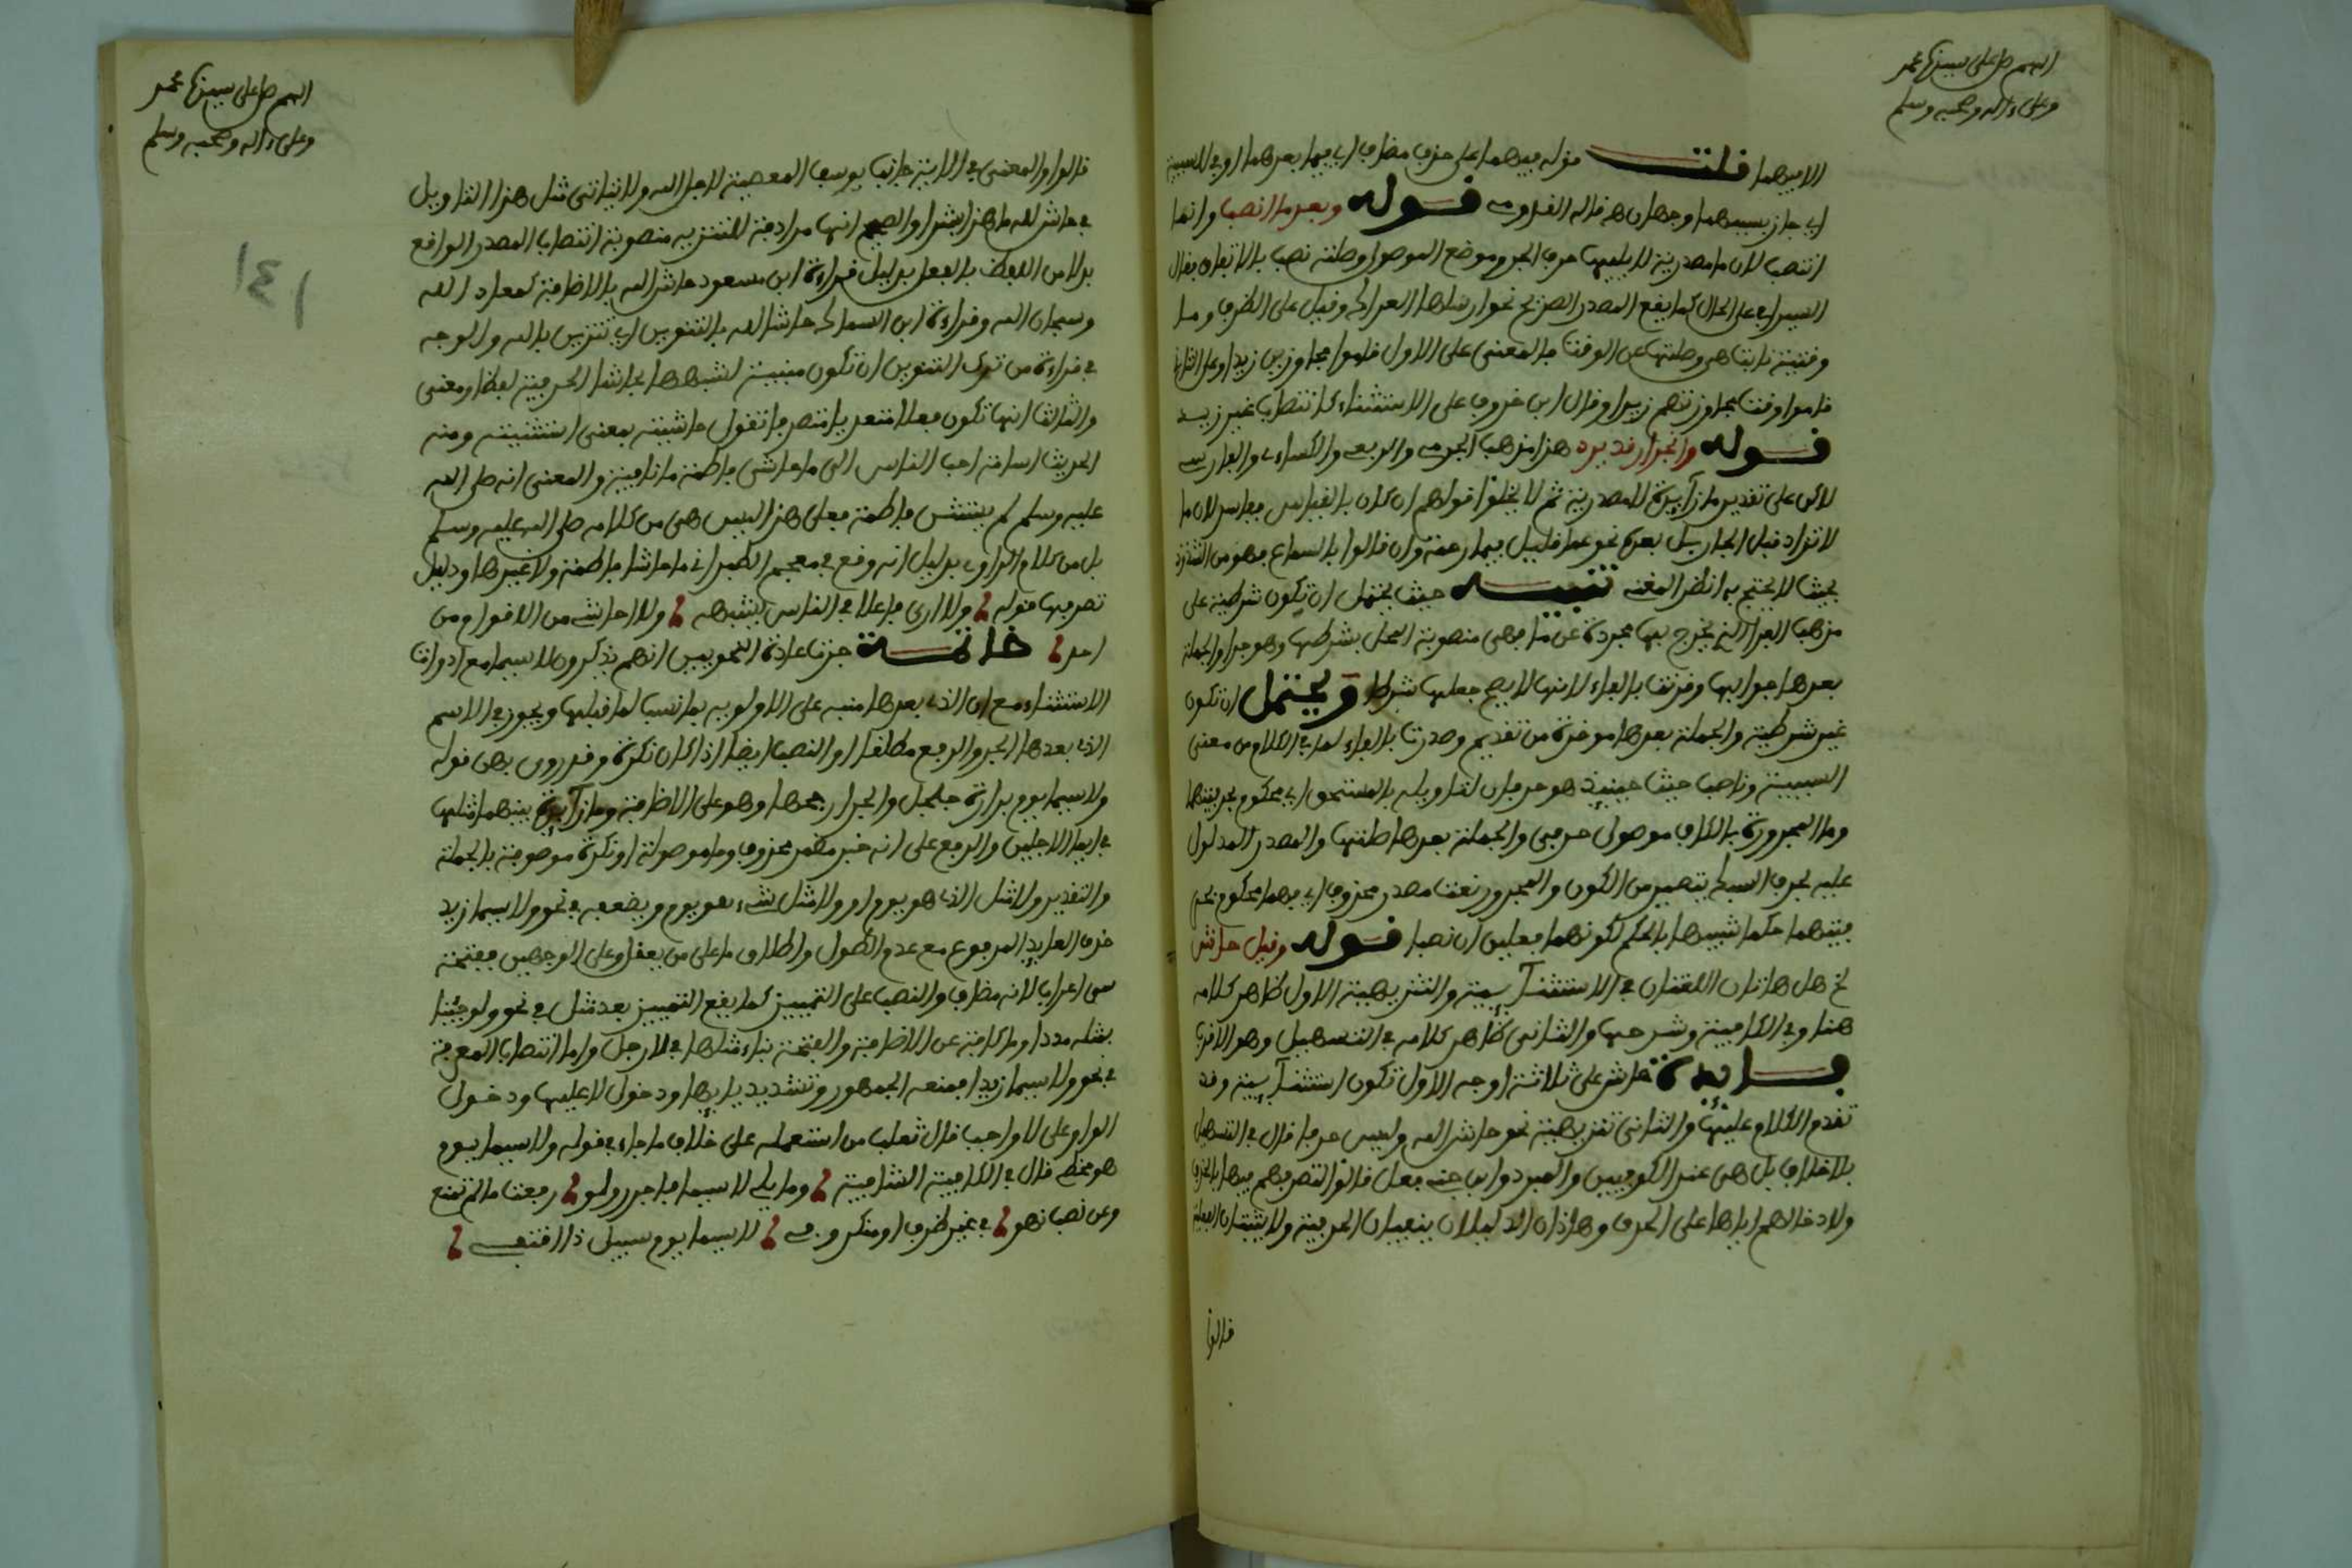 اللهم صل على سيدنا محمد
وعلى ءاله وصحبه وسلم
الا فيهما قلت قوله فيهما على حذف مضاف اي فيما بعدهما او في للسببية
اي جاز بسببهما وجهان هـ قاله الفلاوسي قوله وبعد ما انصب وانما
انتصب لان ما مصدرية لا يليها حرف الجر وموضع الموصول وصلته نصب بالاتفاق فقال
السيرافي على الحال كما يقع المصدر الصريح نحو ارسلها العراك وقيل على الظرف وما
وقتية نابت هي وصلتها عن الوقت فالمعنى على الاول قاموا مجاوزين زيدا وعلى الثاني
قاموا وقت مجاوزتهم زيدا وقال ابن خروف على الاستثناء كانتصاب غير زيد
قوله وانجرار قد يرد هذا مذهب الجرمي والربعي والكسائي والفارسي
لاكن على تقدير ما زائدة لا مصدرية ثم لا يخلوا قولهم ان كان بالقياس ففاسد لان ما
لا تزاد قبل الجار بل بعده نحو عما قليل فبما رحمة وان قالوا بالسماع فهو من الشذوذ
بحيث لا يحتج به انظر المغنى تنبيه حيث يحتمل ان تكون شرطية على
مذهب الفراء الذي يخرج بها مجردة عن ما فهي منصوبة المحل بشرطها وهو جرا والجملة
بعدها جوابها وقرنت بالفاء لانها لا يصح جعلها شرطا ويحتمل ان تكون
غير شرطية والجملة بعدها موخرة من تقديم وصدرت بالفاء لما في الكلام من معنى
السببية وناصب حيث حينئذ هو حرفان لتاويله بالمستحق اي محكوم بحرفيتهما
وما المجرورة بالكاف موصول حرفي والجملة بعدها صلتها والمصدر المدلول
عليه بحرف السبك يتصير من الكون والمجرور نعت مصدر محذوف اي فهما محكوم بحر
فيتهما حكما شبيها بالحكم لكونهما فعلين ان نصبا قوله وقيل حاش
الخ هل هاتان اللغتان في الاستثنآئية والتنزيهية الاول ظاهر كلامه
هنا وفي الكافية وشرحها والثاني ظاهر كلامه في التسهيل وهو الاقرب
فائدة حاش على ثلاثة اوجه الاول تكون استثنآئية وقد
تقدم الكلام عليها والثاني تنزيهية نحو حاش لله وليس حرفا قال في التسهيل
بلا خلاف بل هي عند الكوفيين والمبرد وابن جني فعل قالوا لتصرفهم فيها بالحذف
ولادخالهم اياها على الحرف وهاذان الدليلان ينفيان الحرفية ولا يثبتان الفعلية
قالوا
اللهم صل على سيدنا محمد
وعلى ءاله وصحبه وسلم
١٣١
قالوا والمعنى في الاية جانب يوسف المعصية لاجل الله ولا يتاتى مثل هذا التاويل
في حاش لله ما هذا بشرا والصحيح انها مرادفة للتنزيه منصوبة انتصاب المصدر الواقع
بدلا من اللفظ بالفعل بدليل قراءة ابن مسعود حاش الله بالاضافة كمعاذ الله
وسبحان الله وقراءة ابن السماك حاشا لله بالتنوين اي تنزيس بالله والوجه
في قراءة من ترك التنوين ان تكون مبنية لشبهها بحاشا الحرفية لفظا ومعنى
والثالث انها تكون فعلا متعديا متصرفا تقول حاشيته بمعنى استثنيته ومنه
الحديث اسامة احب الناس الى ما حاشى فاطمة ما نافية والمعنى انه صلى الله
عليه وسلم لم يستثن فاطمة فعلى هذا ليس هي من كلامه صلى الله عليه وسلم
بل من كلام الراوي بدليل انه وقع في معجم الطبراني ما حاشا فاطمة ولا غيرها ودليل
تصرفها قوله ولا ارى فاعلا في الناس يشبهه ولا احاشي من الاقوام من
احد خاتمة جرت عادة النحويين انهم يذكرون لا سيما مع ادوات
الاستثناء مع ان الذي بعدها منبه على الاولوية بما نسب لما قبلها ويجوز في الاسم
الذي بعدها الجر والرفع مطلقا والنصب ايضا اذا كان نكرة وقد روي بهن قوله
ولا سيما يوم بدارة جلجل والجر ارجحها وهو على الاضافة وما زآئدة بينهما مثلها
في ايما الاجلين والرفع على انه خبر مضمر محذوف وما موصولة او نكرة موصوفة بالجملة
والتقدير ولا مثل الذي هو يوم او ولا مثل شيء هو يوم ويضعفه في نحو ولا سيما زيد
حذف العايد المرفوع مع عدم الطول واطلاق ما على من يعقل وعلى الوجهين ففتحة
سي اعراب لانه مضاف والنصب على التمييز كما يقع التمييز بعد مثل في نحو ولو جئنا
بمثله مددا وما كافة عن الاضافة والفتحة بناء مثلها في لا رجل واما انتصاب المعرفة
في نحو ولا سيما زيدا فمنعه الجمهور وتشديد يايها ودخول لا عليها ودخول
الواو على لا واجب قال ثعلب من استعمله على خلاف ما جاء في قوله ولا سيما يوم
هو مخطئ قال في الكافية الشافية وما يلي لا سيما فاجرر ولو رفعت ما لم تمنع
وعن نصبا نحو في غير ظرف او منكر وفي لا سيما يوم سبيل ذا اقتفي